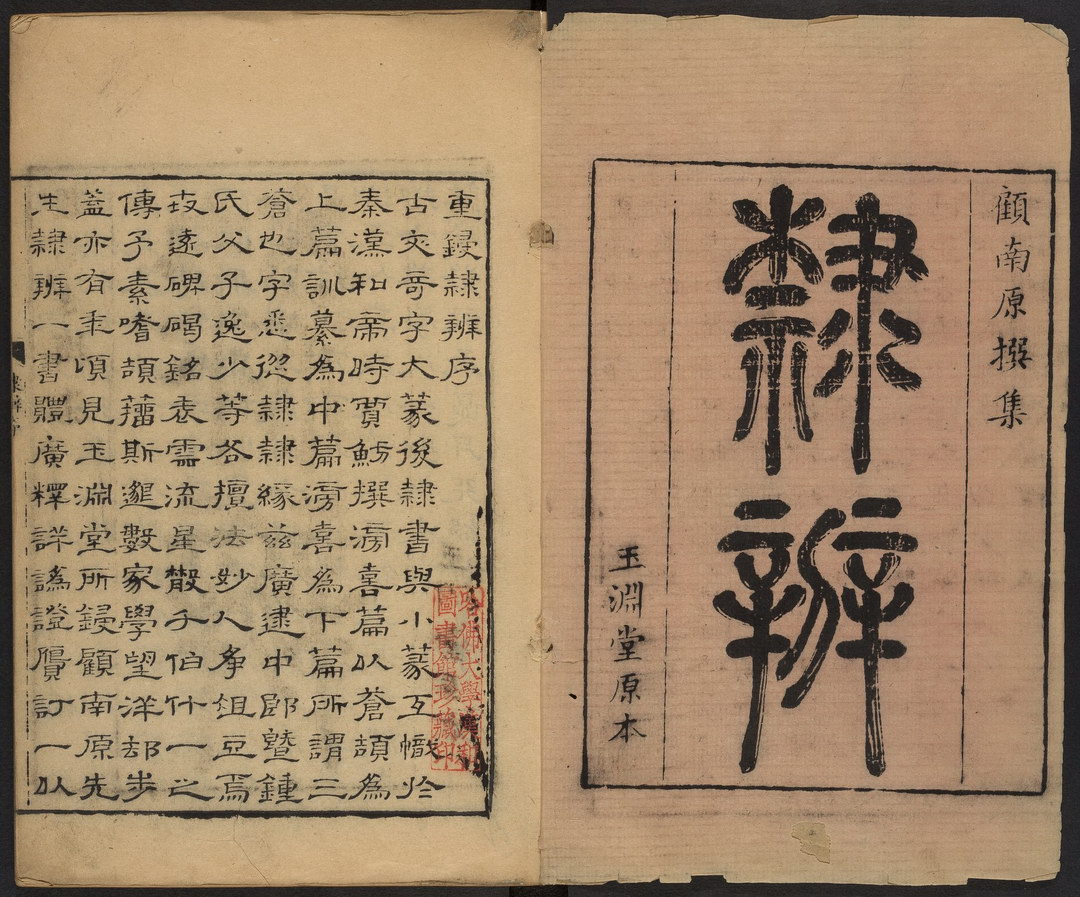 顧南原撰集
隸辨
玉淵堂原本
重鋟隸辨序
古文奇字大篆後隸書與小篆互幟於
秦漢和帝時賈魴撰滂喜篇以蒼頡為
上篇訓纂為中篇滂喜為下篇所謂三
蒼也字悉從隸隸緣茲廣逮中郎暨鍾
氏父子逸少等各擅法妙人争俎豆焉
攷遠碑碣銘表霝流星散千伯什一之
傳予素嗜頡籕斯邈數家學望洋却步
蓋亦有年頃見玉淵堂所鋟顧南原先
生隸辨一書體廣釋詳譌證贋訂一以
哈佛大學漢和
圖書館珍藏印